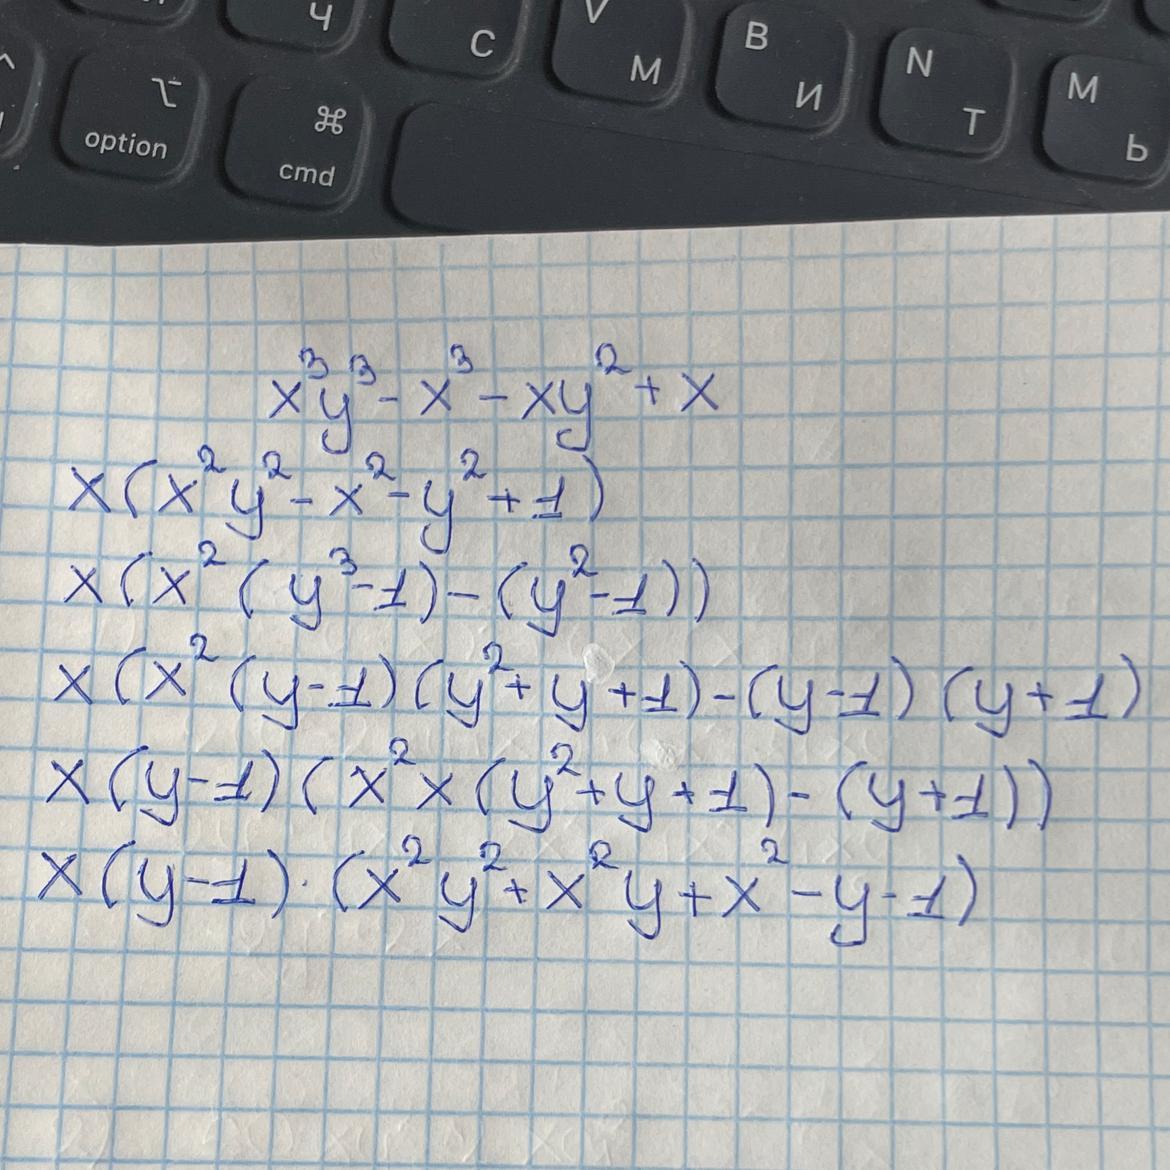 Ч C V М B И N Т M Ь
option ⌥ cmd ⌘
x³y³ - x³ - xy² + x
x(x²y² - x² - y² + 1)
x(x²(y³-1) - (y²-1))
x(x²(y-1)(y²+y+1) - (y-1)(y+1)
x(y-1)(x²x(y²+y+1) - (y+1))
x(y-1)·(x²y²+x²y+x²-y-1)